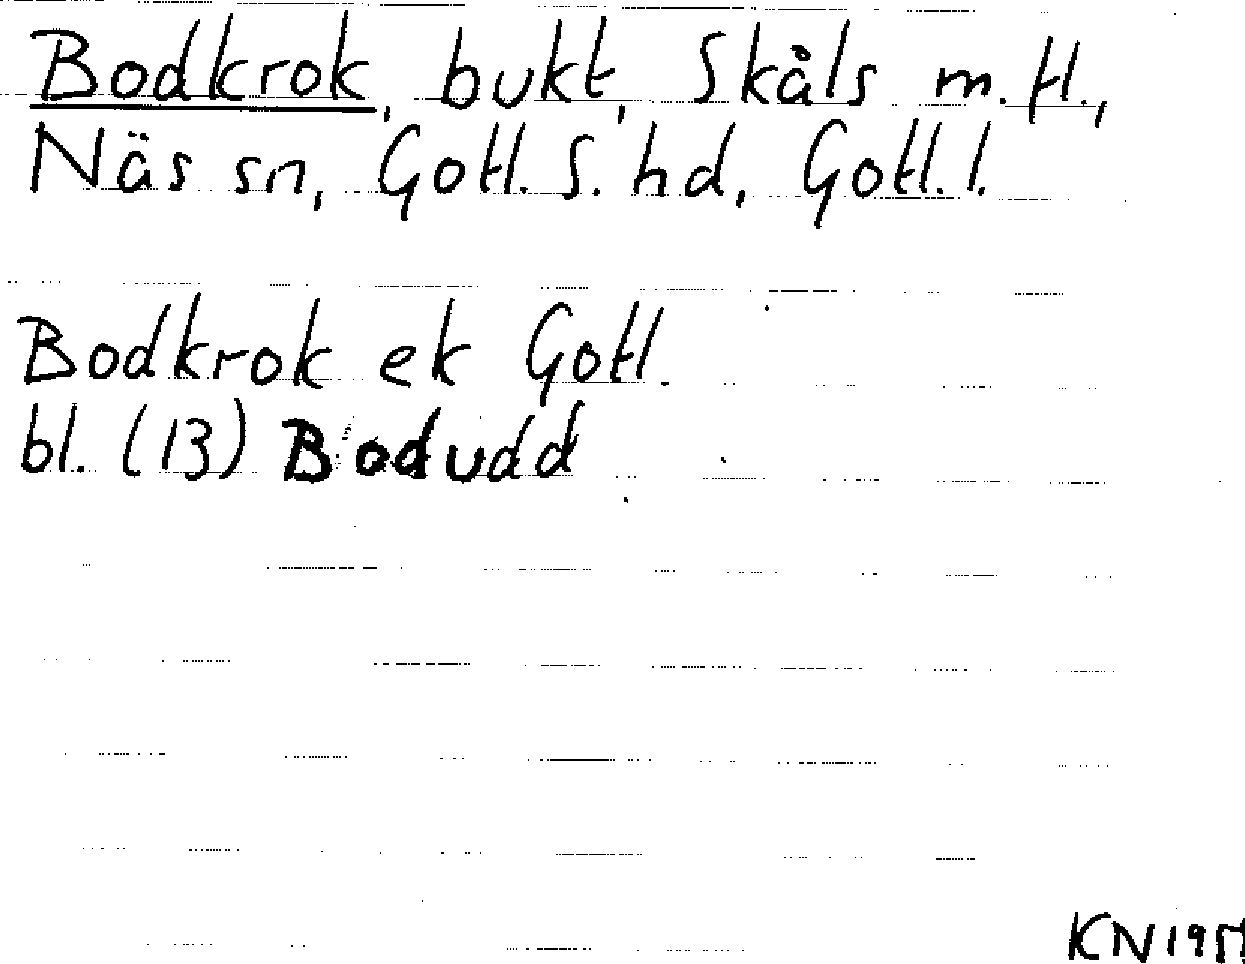 Bodkrok, bukt, Skåls m.fl.,
Näs sn, Gotl. S. hd, Gotl. l.
Bodkrok ek Gotl.
bl. (13) Bodudd
KN